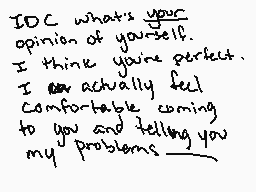 IDC what's your
opinion of yourself.
I think you're perfect.
I actually feel
comfortable coming
to you and telling you
my problems